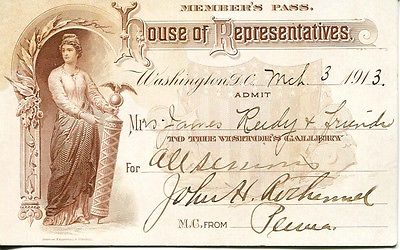 MEMBER'S PASS.
House of Representatives,
Washington, D.C. Mch 3 1913.
ADMIT
Mrs James Reidy & Friends
TO THE VISITOR'S GALLERY
For All sessions
John H.
M.C. FROM Penna.